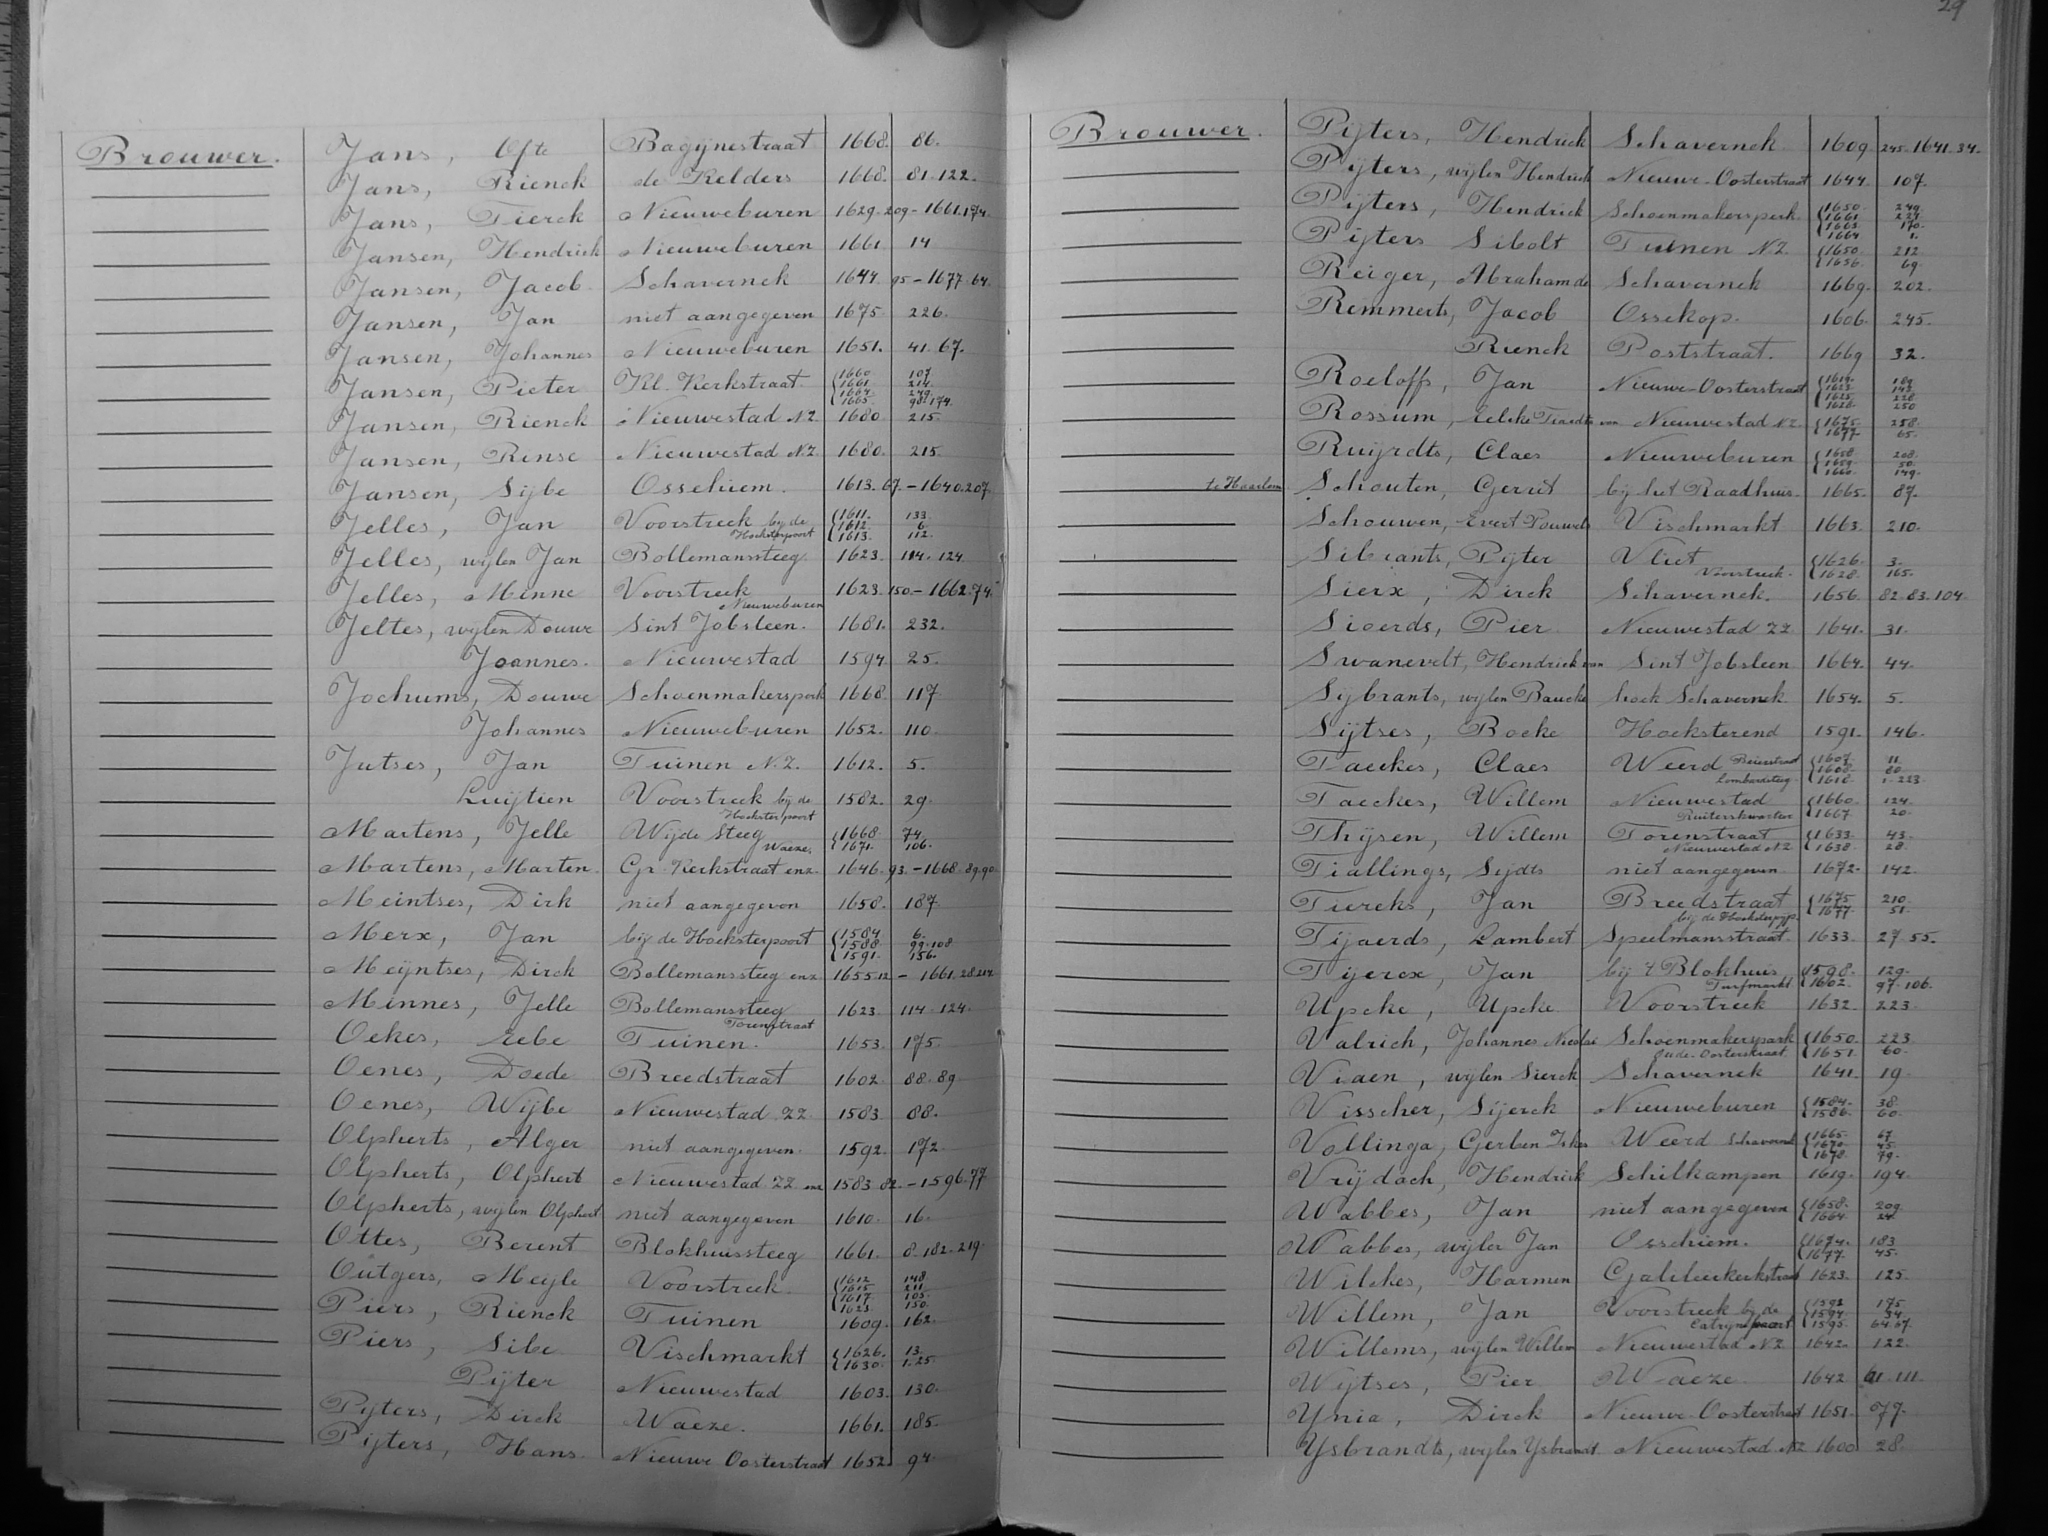 29
Brouwer. Jans, Ofte Bagijnestraat 1668. 86.
Jans, Rienck de Kelders 1668. 81.122.
Jans, Tierck Nieuweburen 1629. 209 - 1661.174.
Jansen, Hendrick Nieuweburen 1661 14
Jansen, Jacob Schavernek 1644 95 - 1677.64.
Jansen, Jan niet aangegeven 1675. 226.
Jansen, Johannes Nieuweburen 1651. 41.67.
Jansen, Pieter Kl. Kerkstraat 1660 107
1661. 214.
1664. 249.
1665. 98.174.
Jansen, Rienck Nieuwestad NZ. 1680. 215.
Jansen, Rense Nieuwestad NZ. 1680. 215.
Jansen, Sijbe Ossehiem. 1613. 67. - 1640.207.
Jelles, Jan Voorstreek bij de Hoeksterpoort 1611. 133.
1612. 6.
1613. 112.
Jelles, wijlen Jan Bollemanssteeg 1623. 114. 124.
Jelles, Minne Voorstreek Nieuweburen 1623. 150. - 1662.74.
Jeltes, wijlen Douwe Sint Jobsleen. 1681. 232.
Joannes. Nieuwestad 1594. 25.
Jochums, Douwe Schoenmakersperk 1668. 117
Johannes Nieuweburen 1652. 110.
Jutses, Jan Tuinen N.Z. 1612. 5.
Luijtien Voorstreek bij de Hoeksterpoort 1582. 29.
Martens, Jelle Wijde Steeg Waeze. 1668. 74.
1671. 106.
Martens, Marten. Gr. Kerkstraat enz. 1646. 93. - 1668. 89.90.
Meintses, Dirk niet aangegeven 1658. 187.
Merx, Jan bij de Hoeksterpoort 1584. 6.
1588. 99.108
1591. 156.
Meijntses, Dirck Bollemanssteeg enz. 1655.12 - 1661.
Minnes, Jelle Bollemanssteeg Torenstraat 1623. 114.124.
Oekes, Eebe Tuinen. 1653. 175.
Oenes, Doede Breedstraat 1602. 88.89
Oenes, Wijbe Nieuwestad ZZ. 1583. 88.
Olpherts, Alger niet aangegeven. 1592. 172.
Olpherts, Olphert Nieuwestad ZZ enz 1583. 82. - 1596.77
Olpherts, wijlen Olphert niet aangegeven 1610. 16.
Ottes, Berent Blokhuissteeg 1661. 8.182.219.
Outgers, Meijle Voorstreek. 1612 148
1615 211
1617. 105.
1623. 150.
Piers, Rienck Tuinen 1609. 162.
Piers, Sibe Vischmarkt 1626. 13.
1630. 1.25.
Pijter Nieuwestad 1603. 130.
Pijters, Dirck Waeze. 1661. 185.
Pijters, Hans. Nieuwe Oosterstraat 1652. 94
Brouwer. Pijters, Hendrick Schavernek. 1609. 245. 1641.34.
Pijters, wijlen Hendrick Nieuwe-Oosterstraat 1644. 107.
Pijters, Hendrick Schoenmakersperk. 1650. 249.
1661. 227.
1663. 170.
1664 1.
Pijters Sibolt Tuinen NZ. 1650. 212
1656. 69.
Reiger, Abraham de Schavernek 1669. 202.
Remmerts, Jacob Ossekop. 1606. 245.
Rienck Poststraat. 1669 32.
Roeloffs, Jan Nieuwe-Oosterstraat 1619. 189
1623. 143.
1625. 228
1628. 250
Rossum, Eelcke Tiaerdts van Nieuwestad NZ. 1675. 258.
1677. 65.
Ruijrdts, Claes Nieuweburen 1658. 208.
1659. 50.
1660. 149.
te Haarlem. Schouten, Gerrit bij het Raadhuis. 1665. 87.
Schouwen, Evert Pouwels Vischmarkt 1663. 210.
Sibrants, Pijter Vliet Voorstreek. 1626. 3.
1628. 165.
Sierx, Dirck Schavernek. 1656. 82.83.104.
Sioerds, Pier Nieuwestad ZZ 1641. 31.
Swanevelt, Hendrick van Sint Jobsleen 1664. 44.
Sijbrants, wijlen Baucke hoek Schavernek. 1654. 5.
Sijtses, Bocke Hoeksterend 1591. 146.
Taeckes, Claes Weerd Beierstraat Lombardsteeg. 1607. 11.
1608. 80.
1618. 1.223.
Taeckes, Willem Nieuwestad Ruiterskwartier 1660. 124.
1667 20.
Thijsen, Willem Torenstraat Nieuwestad NZ 1633. 43.
1638. 28.
Tiallings, Sijdts niet aangegeven 1672. 142.
Tiercks, Jan Breedstraat bij de Hoeksterpijp. 1675. 210.
1677. 51.
Tijaerds, Lambert Speelmansstraat. 1633. 27.55.
Tijerex, Jan bij 't Blokhuis Turfmarkt. 1598. 129.
1602. 97.106.
Upcke, Upcke Voorstreek 1632. 223.
Valrich, Johannes Nicolai Schoenmakerspark Oude-Oosterstraat. 1650. 223.
1651. 60.
Viaen, wijlen Sierck Schavernek 1641. 19.
Visscher, Sijerck Nieuweburen 1584. 38.
1586. 60.
Vollinga, Gerben Iskes Weerd Schavernek 1665. 67.
1670. 45.
1678. 79.
Vrijdach, Hendrick Schilkampen 1619. 194.
Wabbes, Jan niet aangegeven 1658. 209.
1664. 24.
Wabbes, wijlen Jan Ossehiem. 1674. 183
1677. 45.
Wilckes, Harmen Galileerkerkstraat 1623. 125.
Willem, Jan Voorstreek bij de Catrijnepoort 1592 175.
1594. 34.
1595. 64.67.
Willems, wijlen Willem Nieuwestad NZ 1642. 122.
Wijtses, Pier Waeze 1642 61.111.
Ynia, Dirck Nieuwe Oosterstraat 1651. 77.
Ysbrandts, wijlen Ysbrandt Nieuwestad NZ 1600 28.